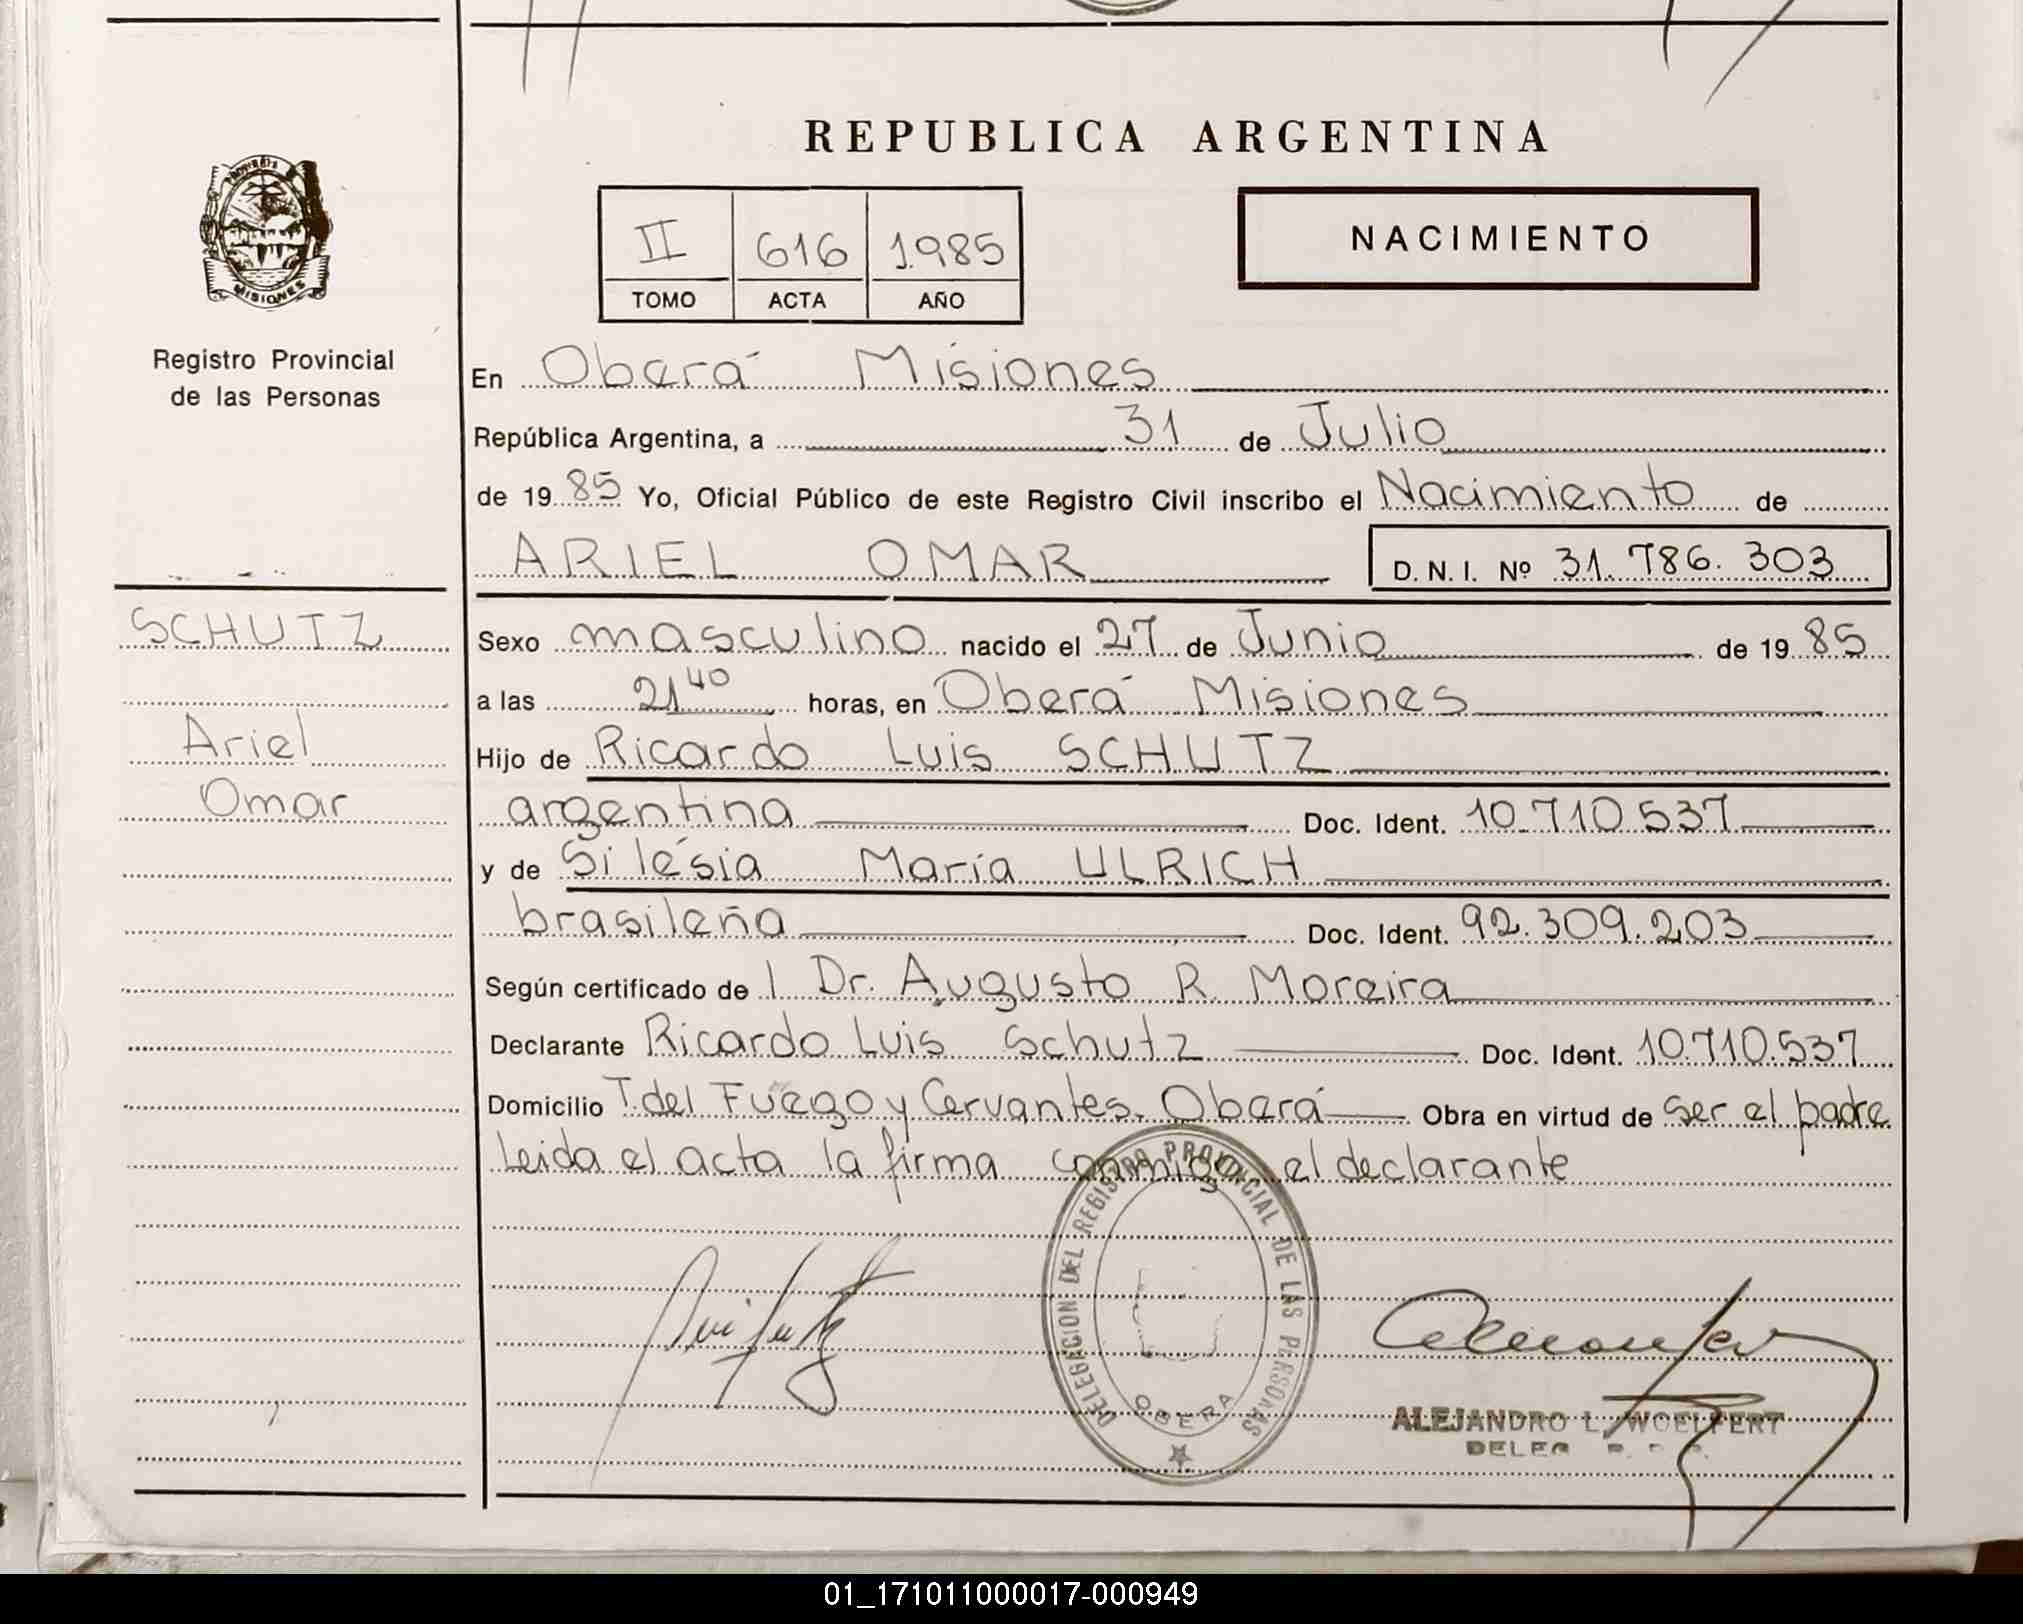 REPUBLICA ARGENTINA
II 616 1.985
TOMO ACTA AÑO
NACIMIENTO
MISIONES
Registro Provincial
de las Personas
SCHUTZ
Ariel
Omar
En Oberá Misiones
República Argentina, a 31 de Julio
de 19 85 Yo, Oficial Público de este Registro Civil inscribo el Nacimiento de
ARIEL OMAR D. N. I. Nº 31.786.303
Sexo masculino nacido el 27 de Junio de 19 85
a las 21 40 horas, en Oberá Misiones
Hijo de Ricardo Luis SCHUTZ
argentina Doc. Ident. 10.710.537
y de Silésia María ULRICH
brasileña Doc. Ident. 92.309.203
Según certificado de l Dr. Augusto R. Moreira
Declarante Ricardo Luis Schutz Doc. Ident. 10.710.537
Domicilio T. del Fuego y Cervantes. Oberá Obra en virtud de ser el padre
Leida el acta la firma conmigo el declarante
DELEGACION DEL REGISTRO PROVINCIAL DE LAS PERSONAS
OBERA
ALEJANDRO L. WOELFERT
DELEG
01_171011000017-000949